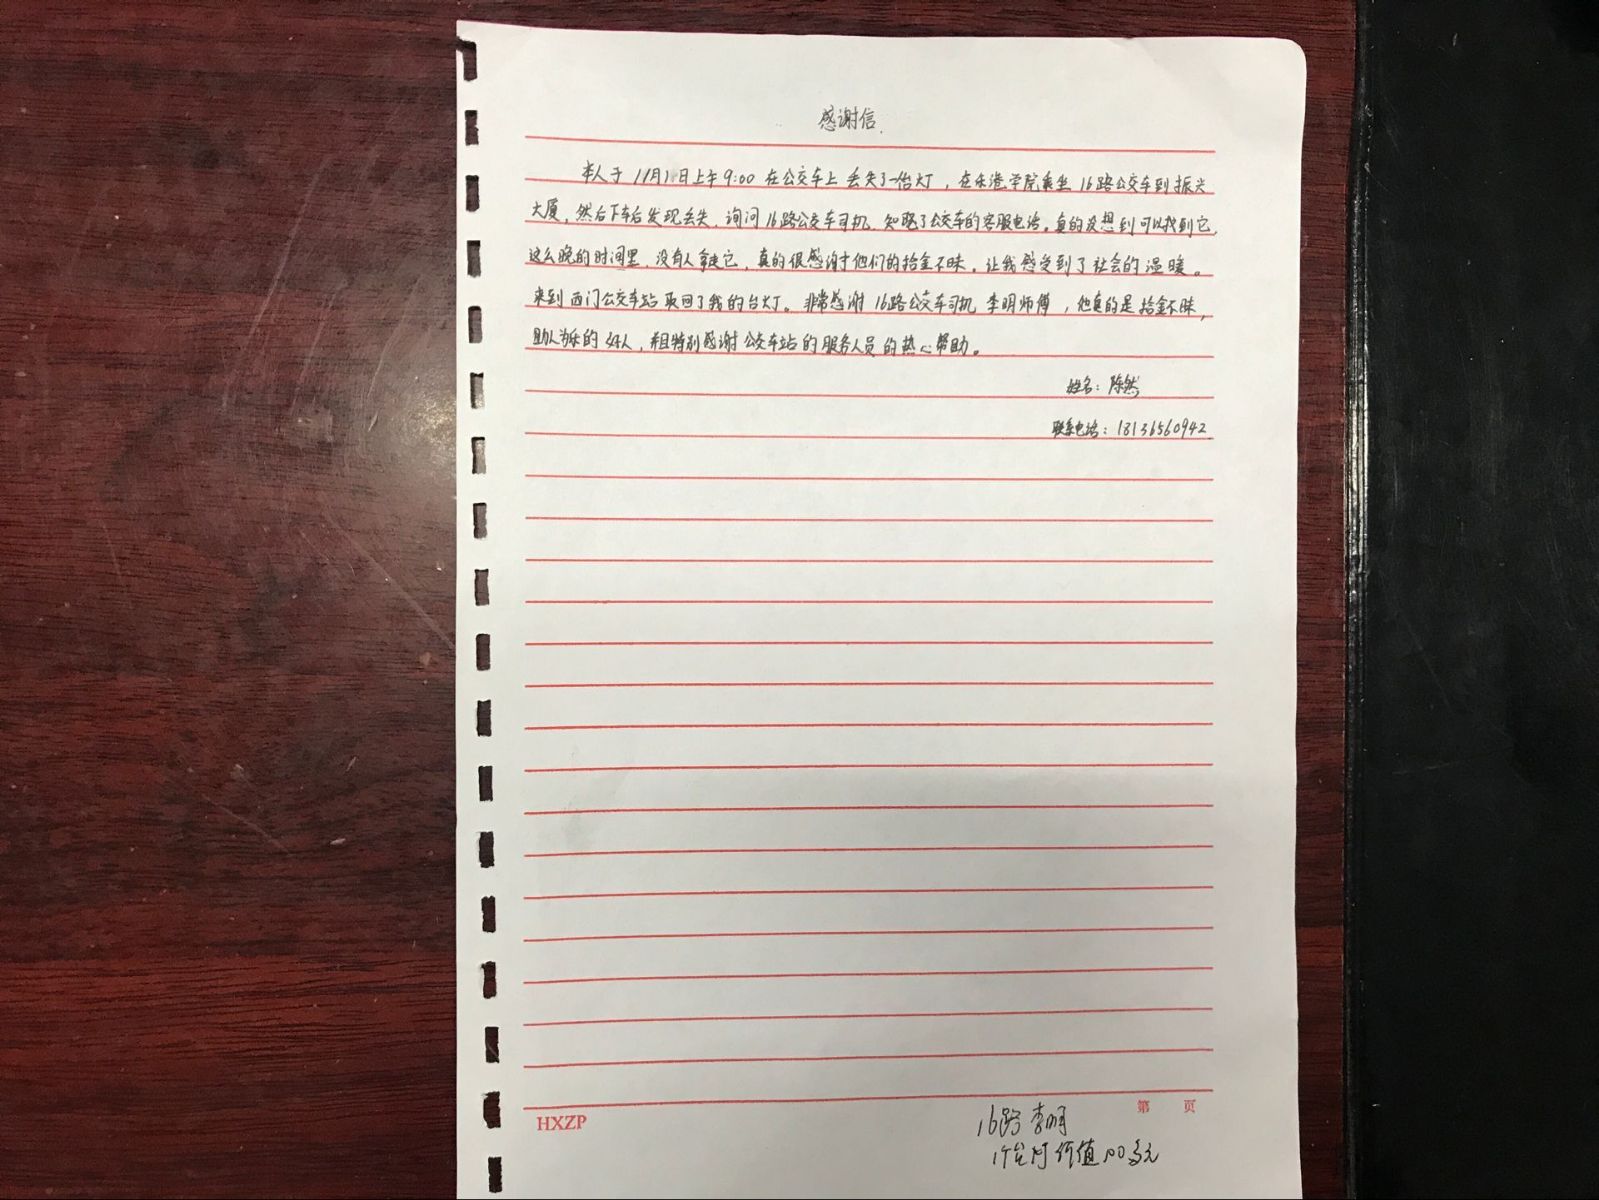 感谢信
本人于11月1日上午9:00在公交车上丢失了一台灯，在东港学院乘坐16路公交车到振兴
大厦，然后下车后发现丢失，询问16路公交车司机，知晓了公交车的客服电话。真的没想到可以找到它，
这么晚的时间里，没有人拿走它，真的很感谢他们的拾金不昧，让我感受到了社会的温暖。
来到西门公交车站取回了我的台灯。非常感谢16路公交车司机李明师傅，他真的是拾金不昧，
助人为乐的好人，并且特别感谢公交车站的服务人员的热心帮助。
姓名：陈然
联系电话：18136560942
HXZP
第 页
16路李明
1个台灯价值100多元